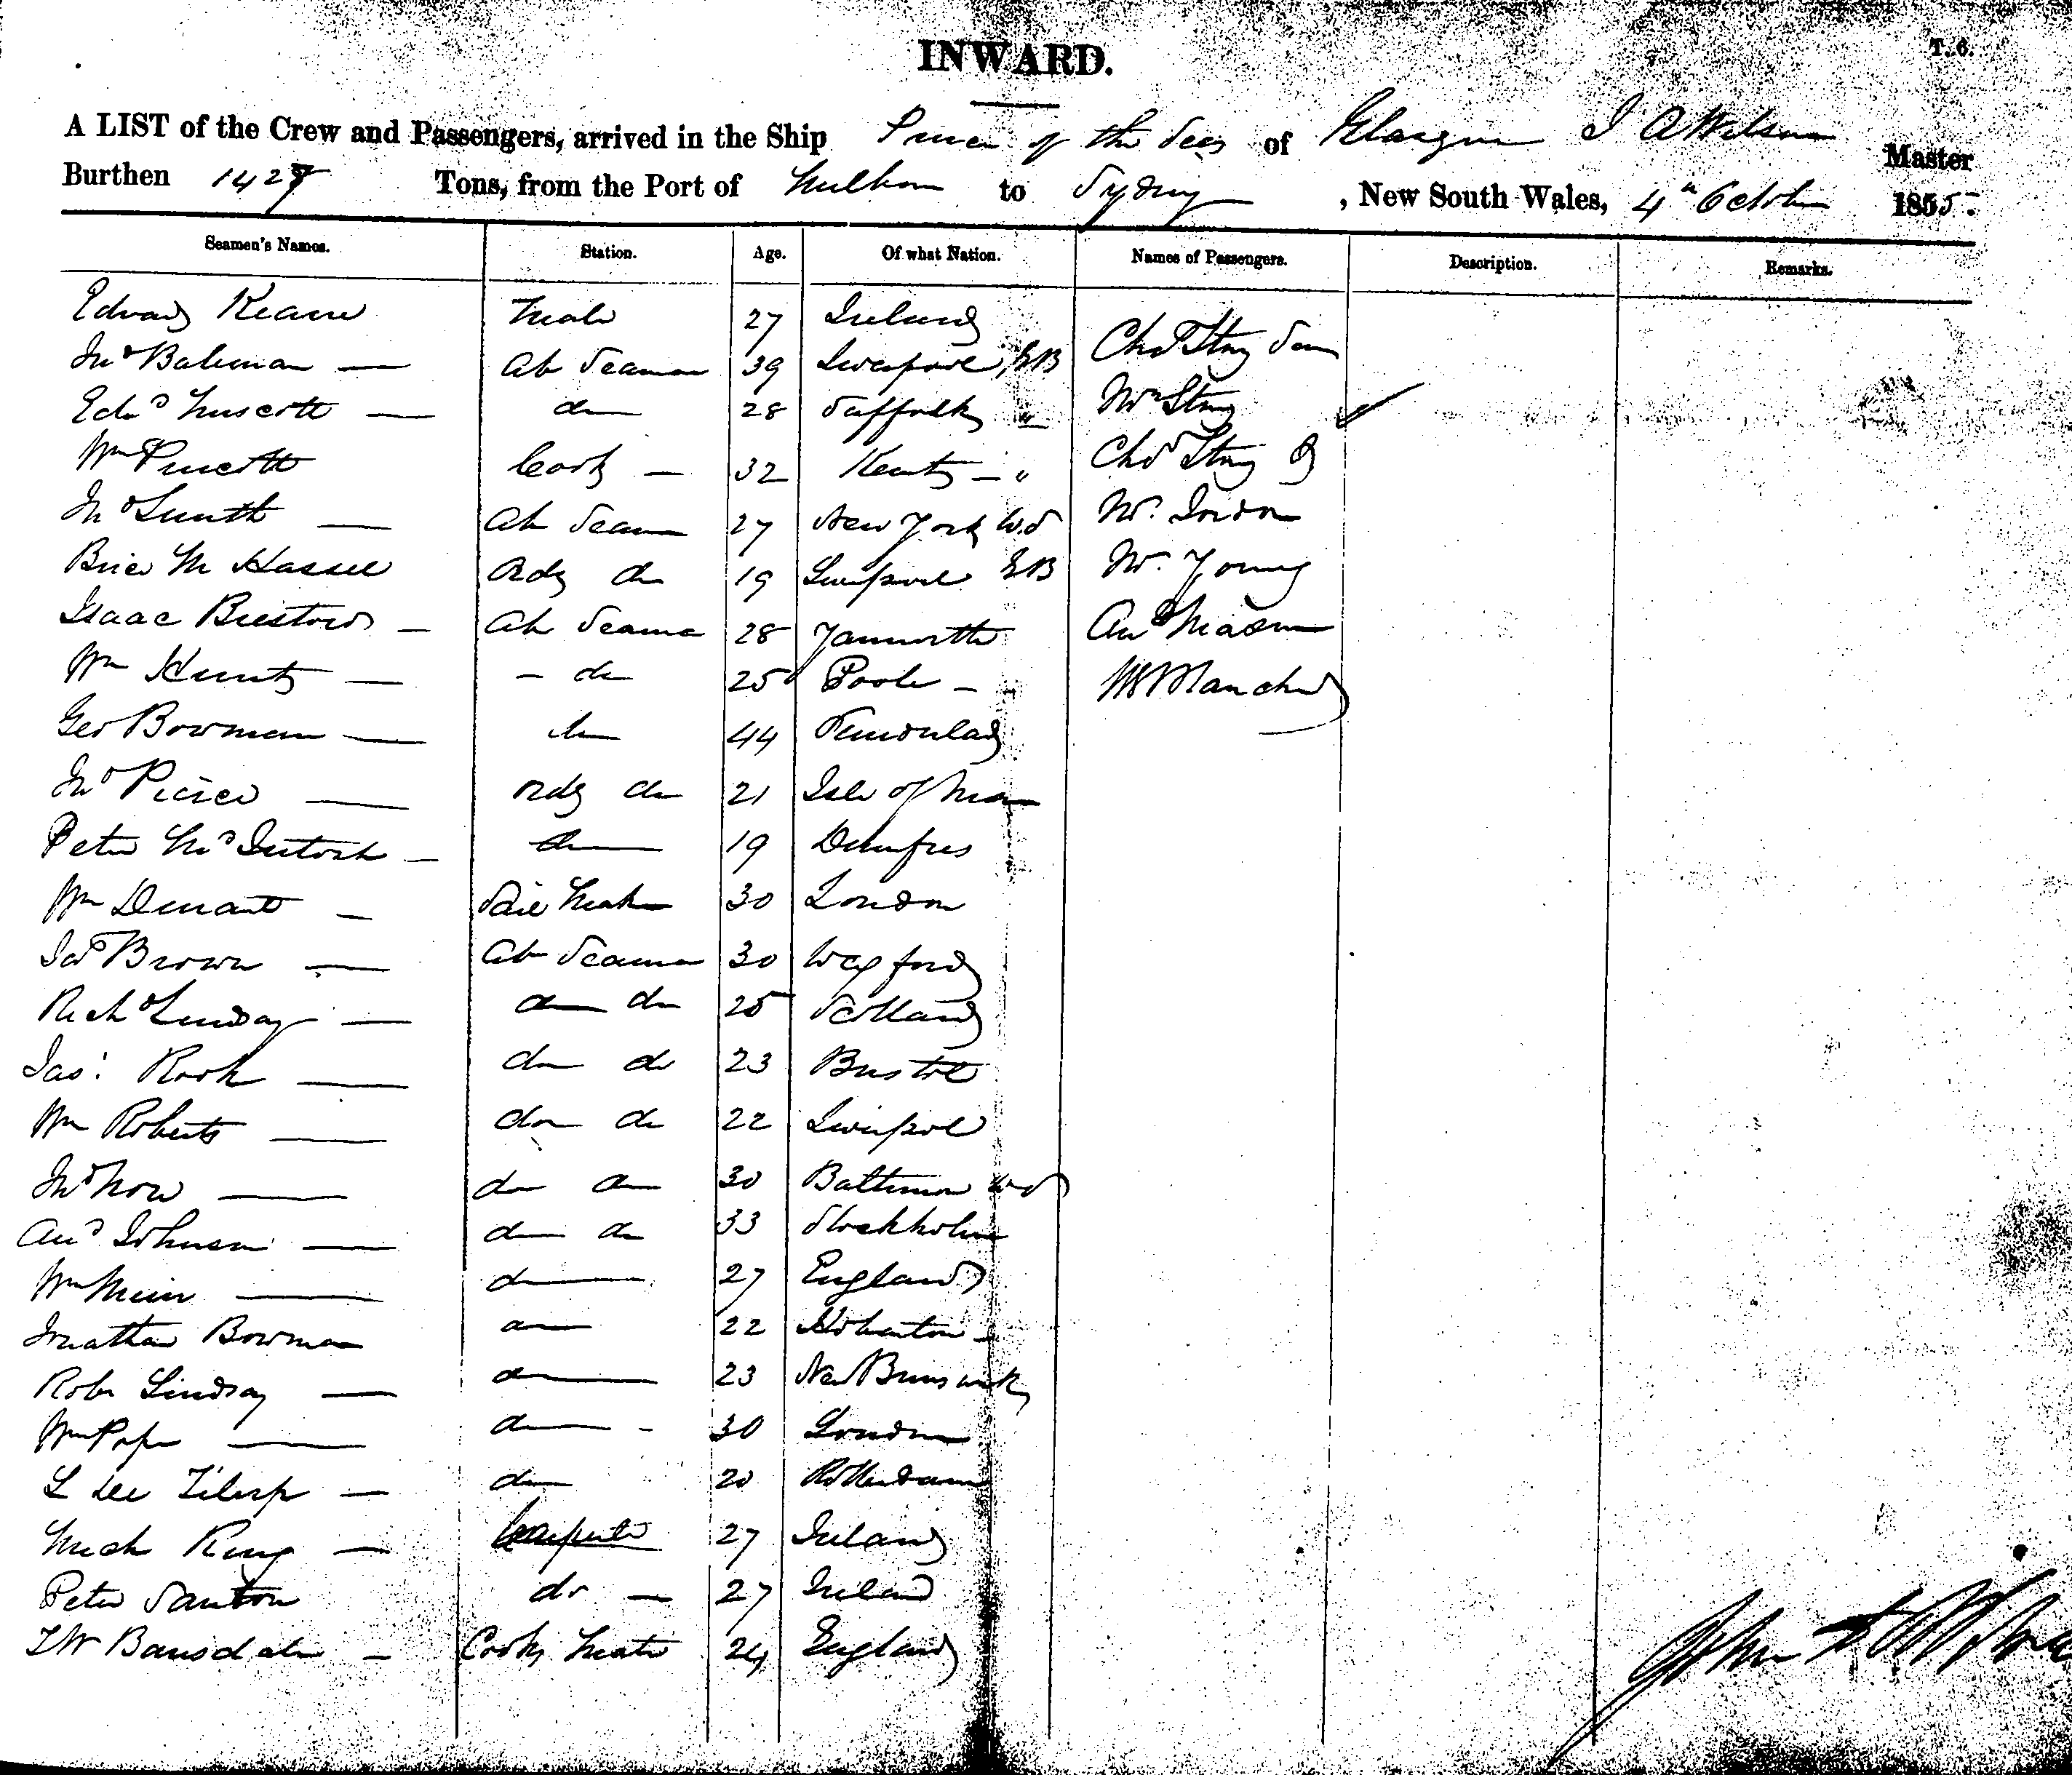 INWARD.
T. 6.
A LIST of the Crew and Passengers, arrived in the Ship Prince of the Seas of Glasgow J A Wilson Master
Burthen 1427 Tons, from the Port of Melbourne to Sydney, New South Wales, 4th October 1855.
Seamen's Names. Station. Age. Of what Nation. Names of Passengers. Description. Remarks.
Edward Keane Mate 27 Ireland Chas Stag Sen
Jno Bateman Ab Seaman 39 Liverpool GB Mrs Stag
Edwd Muscott do 28 Suffolk " Chas Stag
Wm Cook 32 Kent "
Jno Smith Ab Seaman 27 New York U.S Mr.
Brice Mc Hassel Ordy do 19 Liverpool GB Mr. Young
Isaac Bristow Ab Seaman 28 Yarmouth And Mason
Wm Hunt do 25 Poole Blanchard
Geo Bowman do 44
Jno Pierce ordy do 21 Isle of Man
Peter McIntosh do 19 Dumfries
Wm Sail Maker 30 London
Jas Brown Ab Seaman 30 Wexford
Richd Lindsay do do 25 Scotland
Jas: Rook do do 23 Bristol
Wm Roberts do do 22 Liverpool
Jno do do 30 Baltimore U S
And Johnson do do 33 Stockholm
Wm Muir do 27 England
Jonathan Bowman do 22 Hobarton
Robt Lindsay do 23 New Brunswick
Wm Pope do 30 London
L Lee do 20 Rotterdam
Mich King Carpenter 27 Ireland
Peter Santon do 27 Ireland
Cooks Mate 24 England
John A Wilson